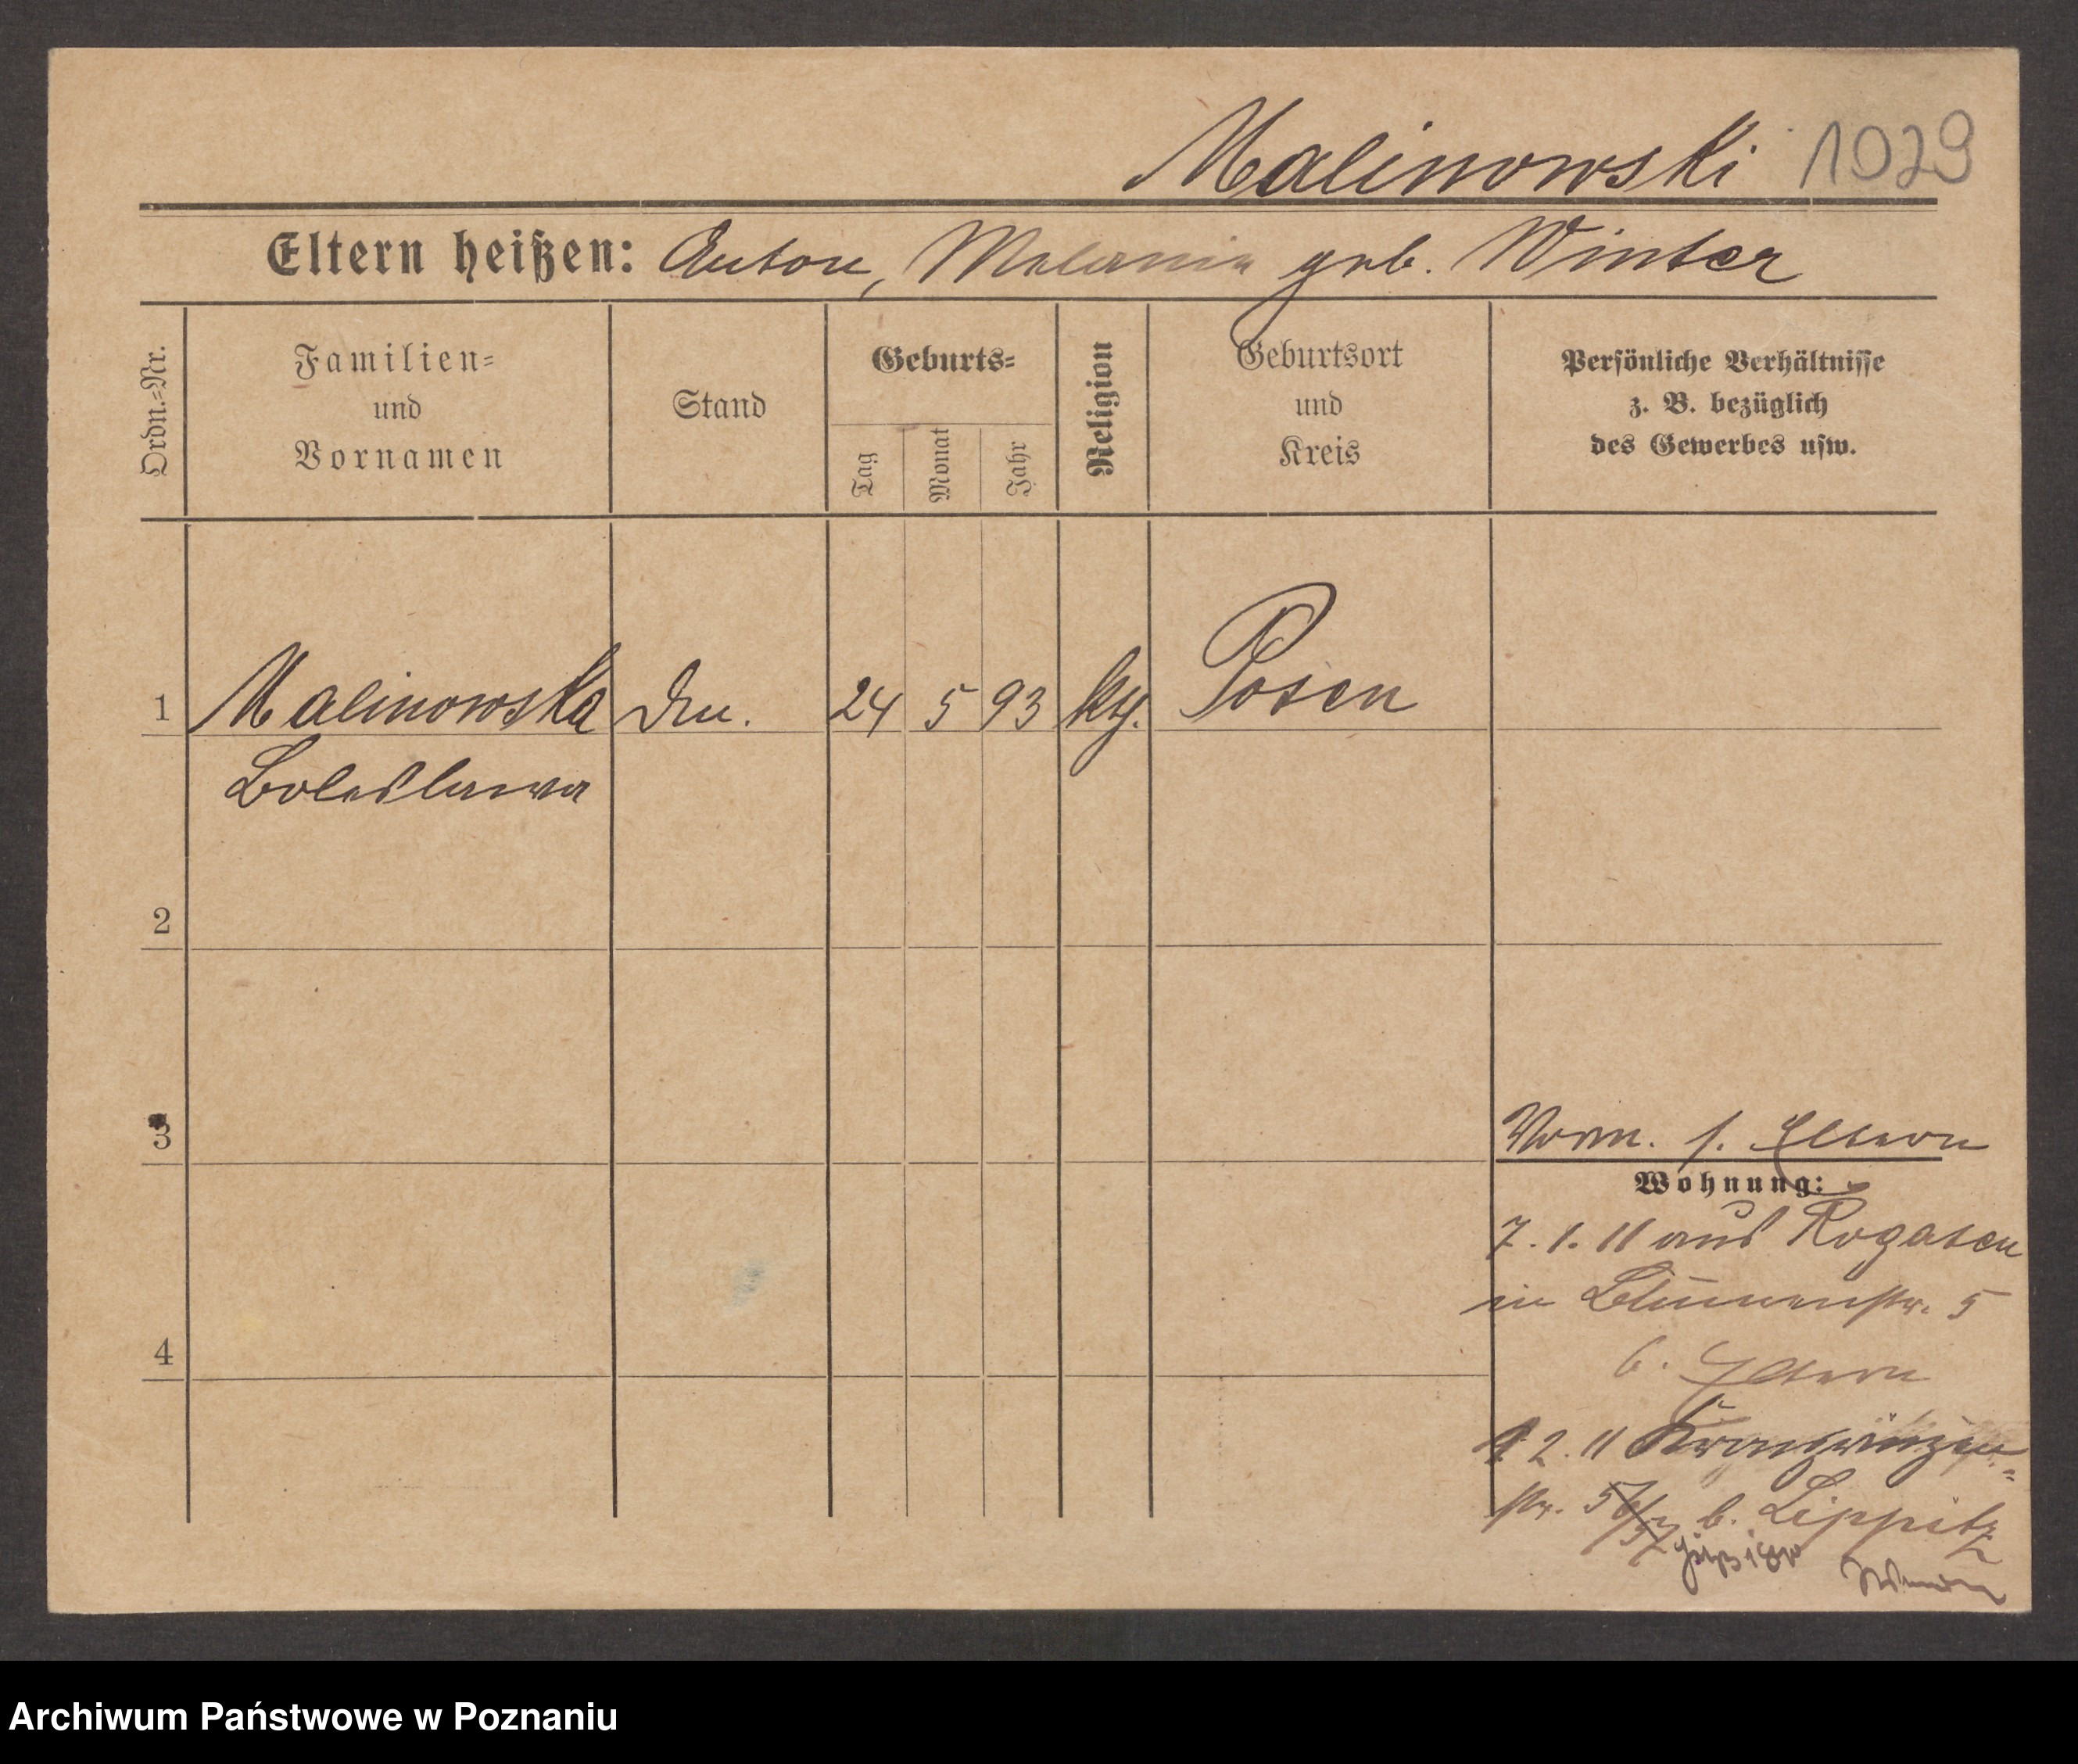 Malinowski 1029
Eltern heißen: Anton, Melania geb. Winter
Ordn.=Nr.
Familien=
und
Vornamen
Stand
Geburts=
Tag
Monat
Jahr
Religion
Geburtsort
und
Kreis
Persönliche Verhältnisse
z. B. bezüglich
des Gewerbes usw.
1 Malinowska 24 5 93 Posen
Boleslawa
2
3
Vorm. s. Eltern
Wohnung:
7. 1. 11 aus Rogasen
in Blumenstr. 5
b. Eltern
2. 11 Kronprinzen=
str. b. Lippitz
4
Archiwum Państwowe w Poznaniu